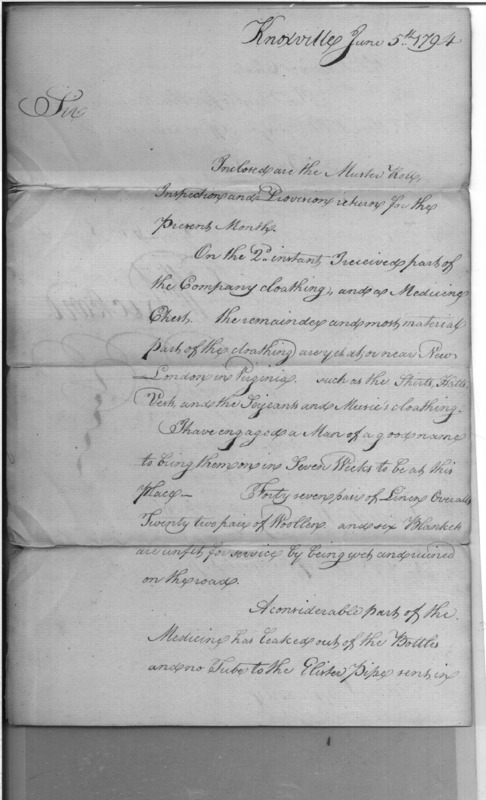 Knoxville June 5th. 1794
Sir
Inclosed are the Muster Roll,
Inspection and Provision return for the
present Month.
On the 2d. instant I received part of
the Company cloathing, and a Medicine
Chest. the remainder and most material
part of the cloathing are yet at or near New
London in Virginia. such as the Shirts, Hatts,
Vest, and the Serjeants and Music's cloathing.
I have engaged a Man of a good name
to bring them on in Seven Weeks to be at this
place — Forty seven pair of Linen Overalls
Twenty two pair of Woollen and six Blankets
are unfit for service by being wet and ruined
on the road.
A considerable part of the
Medicine has leaked out of the Bottles
and no Tube to the Glister Pipe sent in